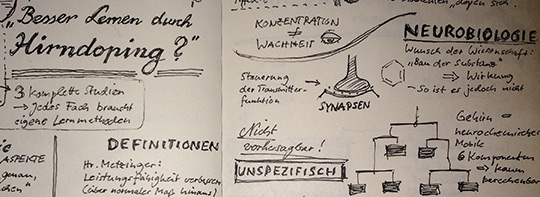 „Besser Lernen durch
Hirndoping?"
3 komplette Studien
→ Jedes Fach braucht
eigene Lernmethoden
ASPEKTE
genau,
DEFINITIONEN
Hr. Metzinger:
Leistungsfähigkeit verbessern
(über normales Maß hinaus)
KONZENTRATION
≠
WACHHEIT
Steuerung
der Transmitter-
funktion
→
SYNAPSEN
Nicht
vorhersagbar!
UNSPEZIFISCH
NEUROBIOLOGIE
Wunsch der Wissenschaft:
„Bau der Substanz"
⇒ Wirkung
- So ist es jedoch nicht
Gehirn =
neurochemisches
Mobile
6 Komponenten
→ kaum
berechenbar